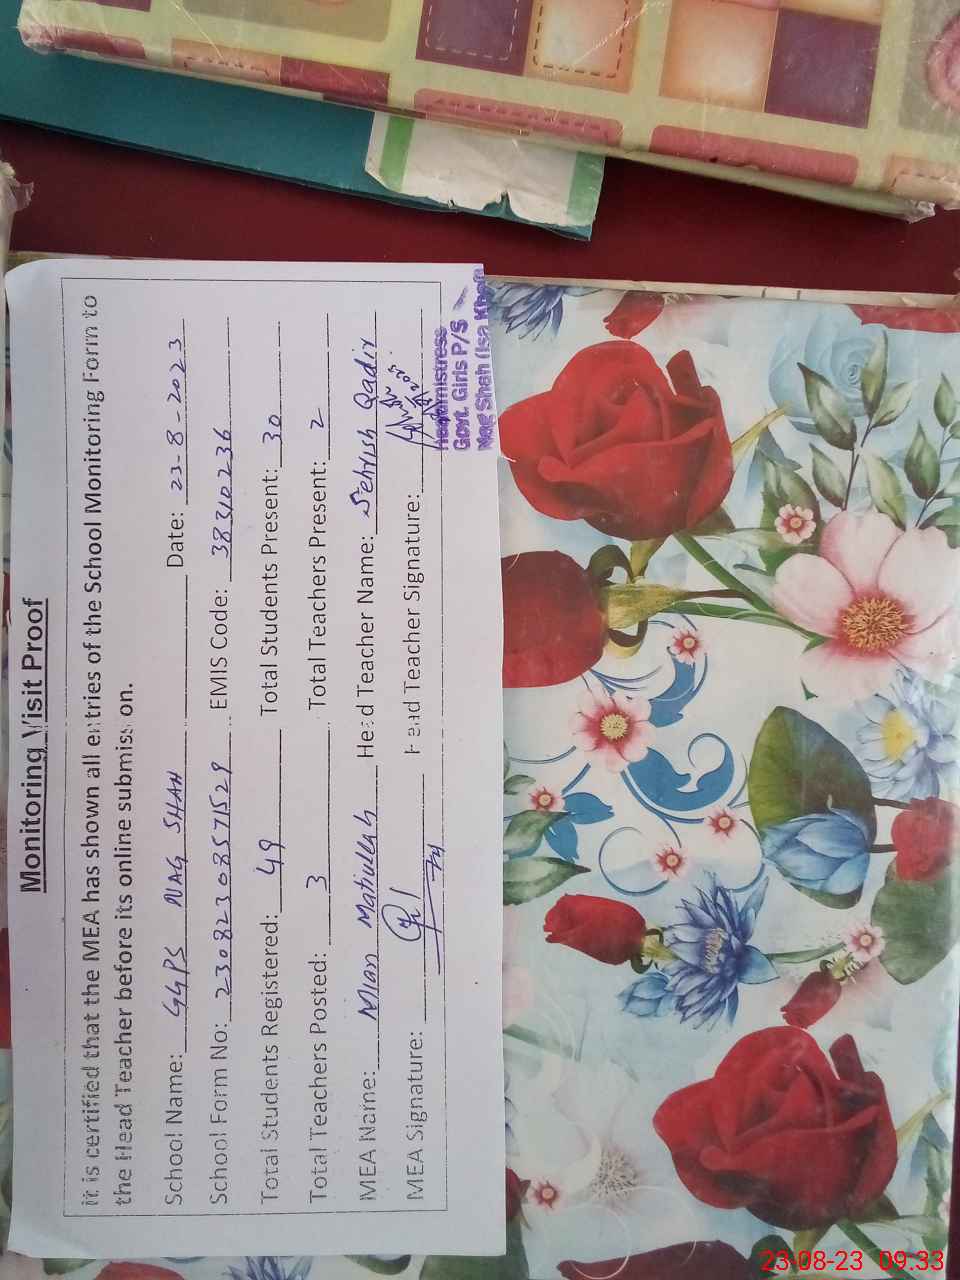 Monitoring Visit Proof
It is certified that the MEA has shown all entries of the School Monitoring Form to
the Head Teacher before its online submission.
School Name: GGPS NAG SHAH Date: 23-8-2023
School Form No: 23082308571529 EMIS Code: 38310236
Total Students Registered: 49 Total Students Present: 30
Total Teachers Posted: 3 Total Teachers Present: 2
MEA Name: Mian Matiullah Head Teacher Name: Sehrish Qadir
MEA Signature: Head Teacher Signature:
Headmistress
Govt. Girls P/S
Nag Shah (Isa Khel)
23-08-23 09.33